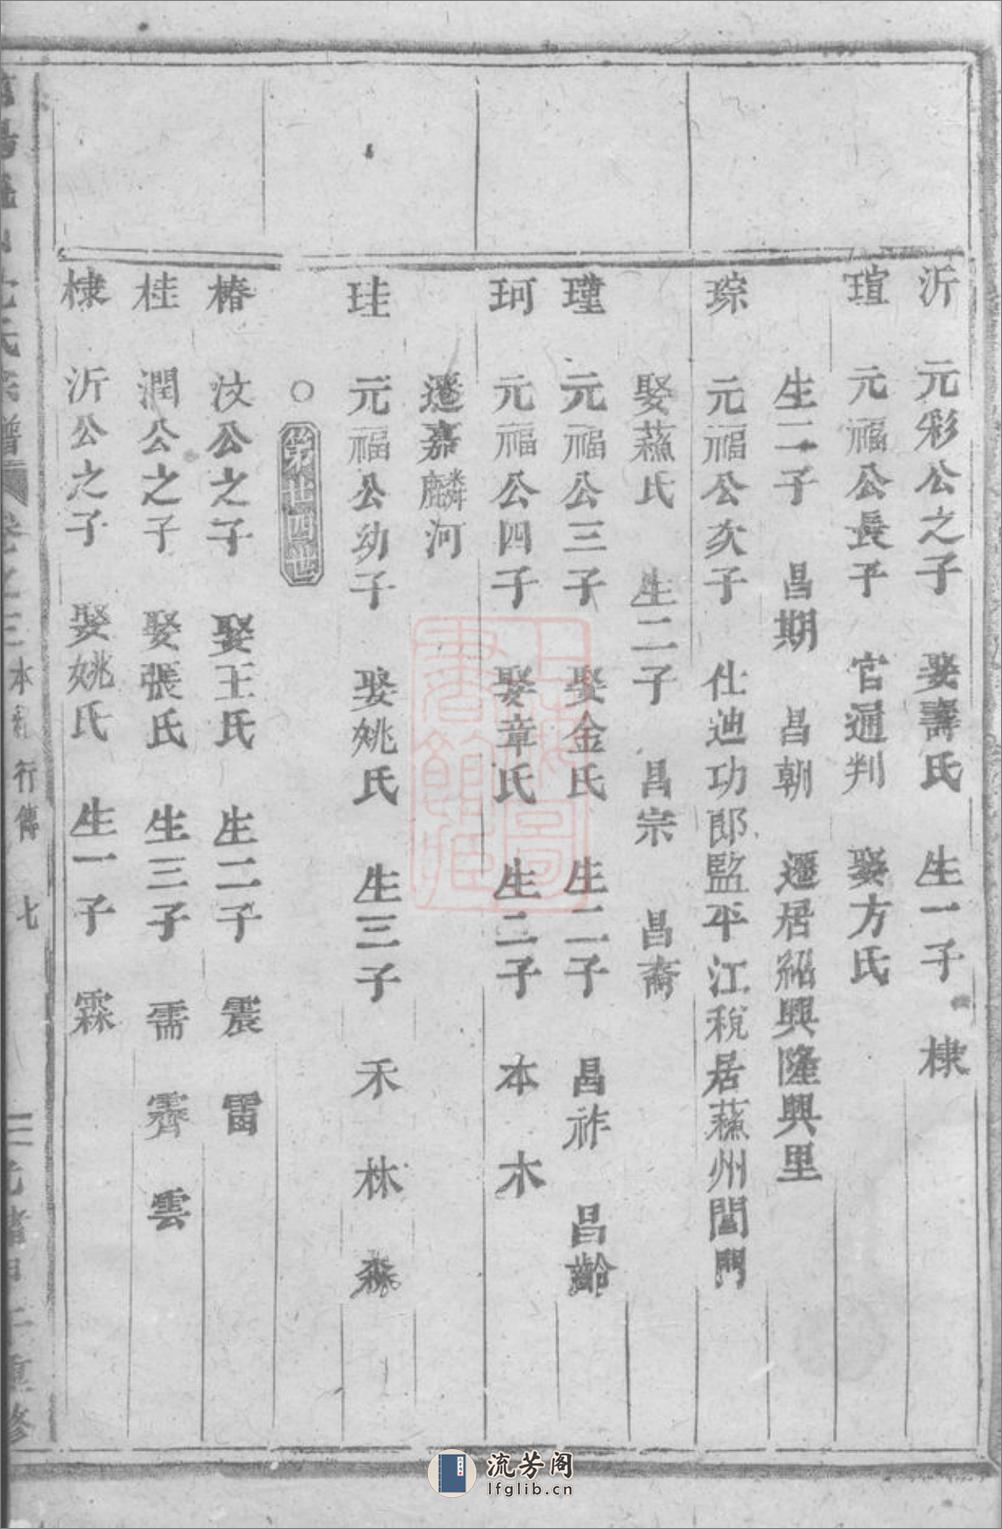 沂 元彩公之子 娶壽氏 生一子 棣
瑄 元福公長子 官通判 娶方氏
生二子 昌期 昌朝 遷居紹興隆興里
琮 元福公次子 仕迪功郎監平江稅居蘇州閶門
娶蘇氏 生二子 昌宗 昌裔
瑾 元福公三子 娶金氏 生二子 昌祚 昌齡
珂 元福公四子 娶章氏 生二子 本 木
遷嘉麟河
珪 元福公幼子 娶姚氏 生三子 禾 林 森
○ 第廿四世
椿 汶公之子 娶王氏 生二子 震 雷
桂 潤公之子 娶張氏 生三子 需 霽 雲
棣 沂公之子 娶姚氏 生一子 霖
氏宗譜 卷之三 行傳 七
重修
上海圖書館藏
流芳阁
lfglib.cn